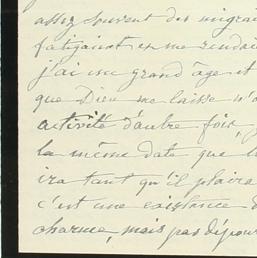 assez souvent des migrai
fatigant et me rendai
j'ai un grand âge et
que Dieu me laisse
activité d'autre fois,
la même date que
ira tant qu'il plaira
c'est une existance
charme, mais pas dépour